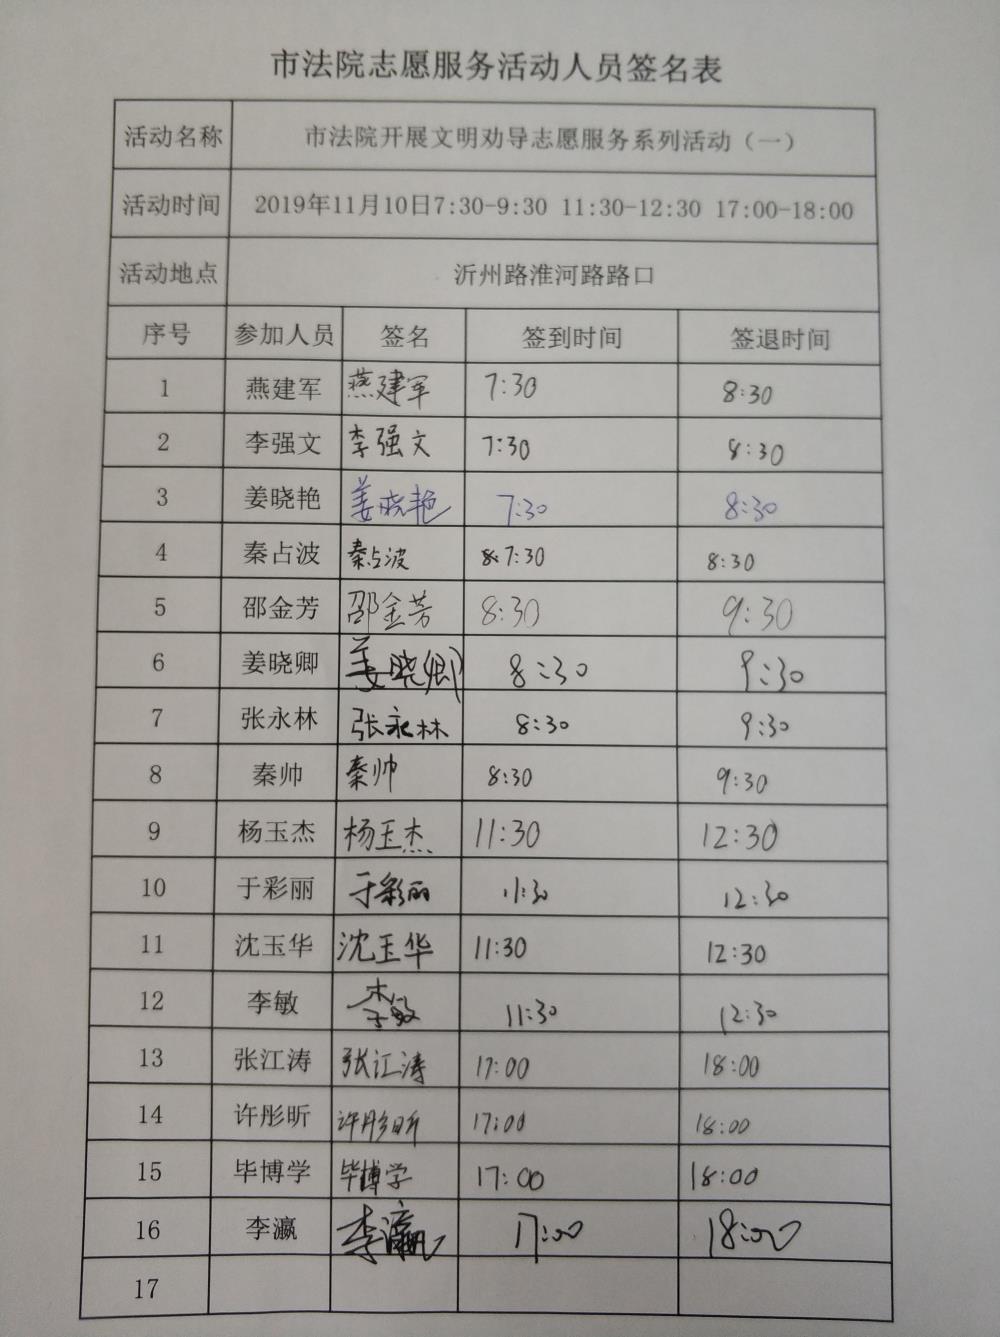 市法院志愿服务活动人员签名表
活动名称 市法院开展文明劝导志愿服务系列活动（一）
活动时间 2019年11月10日7:30-9:30 11:30-12:30 17:00-18:00
活动地点 沂州路淮河路路口
序号 参加人员 签名 签到时间 签退时间
1 燕建军 燕建军 7:30 8:30
2 李强文 李强文 7:30 8:30
3 姜晓艳 姜晓艳 7:30 8:30
4 秦占波 秦占波 7:30 8:30
5 邵金芳 邵金芳 8:30 9:30
6 姜晓卿 姜晓卿 8:30 9:30
7 张永林 张永林 8:30 9:30
8 秦帅 秦帅 8:30 9:30
9 杨玉杰 杨玉杰 11:30 12:30
10 于彩丽 于彩丽 11:30 12:30
11 沈玉华 沈玉华 11:30 12:30
12 李敏 李敏 11:30 12:30
13 张江涛 张江涛 17:00 18:00
14 许彤昕 许彤昕 17:00 18:00
15 毕博学 毕博学 17:00 18:00
16 李瀛 李瀛 17:00 18:00
17